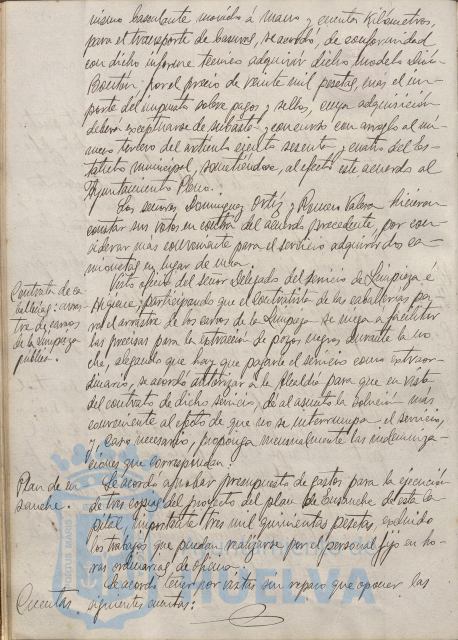 nismo basculante movido á mano y cuentas Kilómetros,
para el transporte de basuras, se acordó, de conformidad
con dicho informe técnico adquirir dicho modelo
por el precio de veinte mil pesetas, más el im-
porte del impuesto sobre pagos y sellos, cuya adquisición
deberá exceptuarse de subasta y concurso con arreglo al nú-
mero tercero del artículo ciento sesenta y cuatro del Es-
tatuto municipal, sometiéndose, al efecto este acuerdo al
Ayuntamiento Pleno.
Los señores Dominguez Ortiz y Romero hicieron
constar sus votos en contra del acuerdo precedente, por con-
siderar más conveniente para el servicio adquirir dos ca-
mionetas en lugar de una.
Contrato de ca
ballerías: arras-
tre de carros
de la limpieza
pública.
Visto oficio del señor Delegado del servicio de Limpieza é
Higiene, participando que el contratista de las caballerías pa-
ra el arrastre de los carros de la Limpieza se niega a facilitar
las precisas para la extracción de pozos negros durante la no-
che, alegando que hay que pagarle el servicio como extraor-
dinario, se acordó autorizar a la Alcaldía para que en vista
del contrato de dicho servicio, dé al asunto la solución más
conveniente al efecto de que no se interrumpa el servicio,
y, caso necesario, proponga mensualmente las indemniza-
ciones que correspondan.
Plan de en
sanche.
Se acordó aprobar presupuesto de gastos para la ejecución
de tres copias del proyecto del plan de Ensanche de esta Ca-
pital, importante tres mil quinientas pesetas, excluido
los trabajos que puedan realizarse por el personal fijo en ho-
ras ordinarias de oficina.
Cuentas.
Se acordó tener por vistas sin reparo que oponer las
siguientes cuentas:
HUELVA